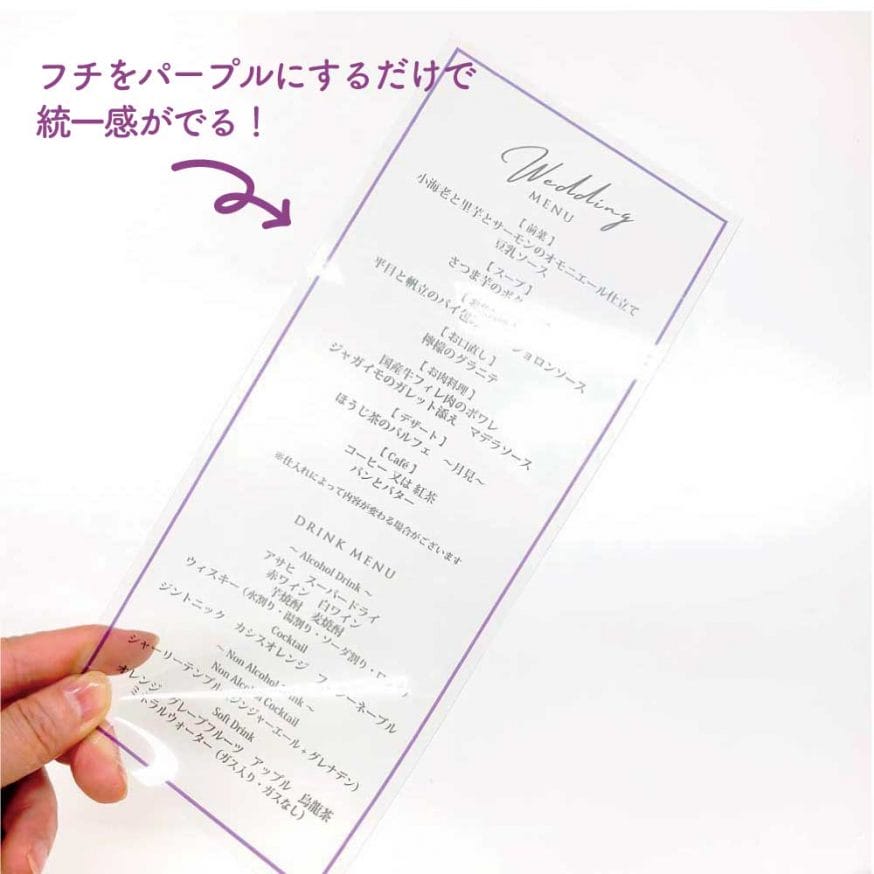 フチをパープルにするだけで
統一感がでる！
Wedding
MENU
【前菜】
小海老と里芋とサーモンのオモニエール仕立て
豆乳ソース
【スープ】
さつま芋のポタ
【お
平目と帆立のパイ包 ショロンソース
【お口直し】
檸檬のグラニテ
【お肉料理】
国産牛フィレ肉のポワレ
ジャガイモのガレット添え マデラソース
【デザート】
ほうじ茶のパルフェ ～月見～
【Café】
コーヒー 又は 紅茶
パンとバター
※仕入れによって内容が変わる場合がございます
DRINK MENU
～ Alcohol Drink ～
アサヒ スーパードライ
赤ワイン 白ワイン
芋焼酎 麦焼酎
ウィスキー（水割り・湯割り・ソーダ割り・ロック
Cocktail
ジントニック カシスオレンジ ファジーネーブル
～ Non Alcohol Drink ～
Non Alcohol Cocktail
シャーリーテンプル（ジンジャーエール + グレナデン）
Soft Drink
オレンジ グレープフルーツ アップル 烏龍茶
ミネラルウォーター（ガス入り・ガスなし）